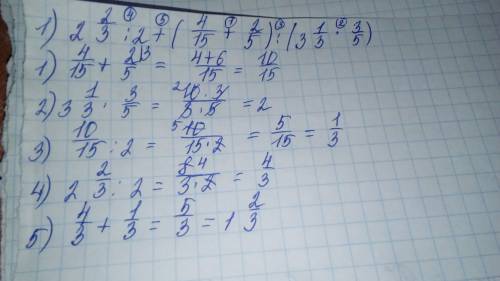 1) 2 2/3 : 2 + ( 4/15 + 2/5 ) : ( 3 1/3 · 3/5 )
1) 4/15 + 2/5 = 4+6/15 = 10/15
2) 3 1/3 · 3/5 = 10·3/3·5 = 2
3) 10/15 : 2 = 10/15·2 = 5/15 = 1/3
4) 2 2/3 : 2 = 8/3·2 = 4/3
5) 4/3 + 1/3 = 5/3 = 1 2/3